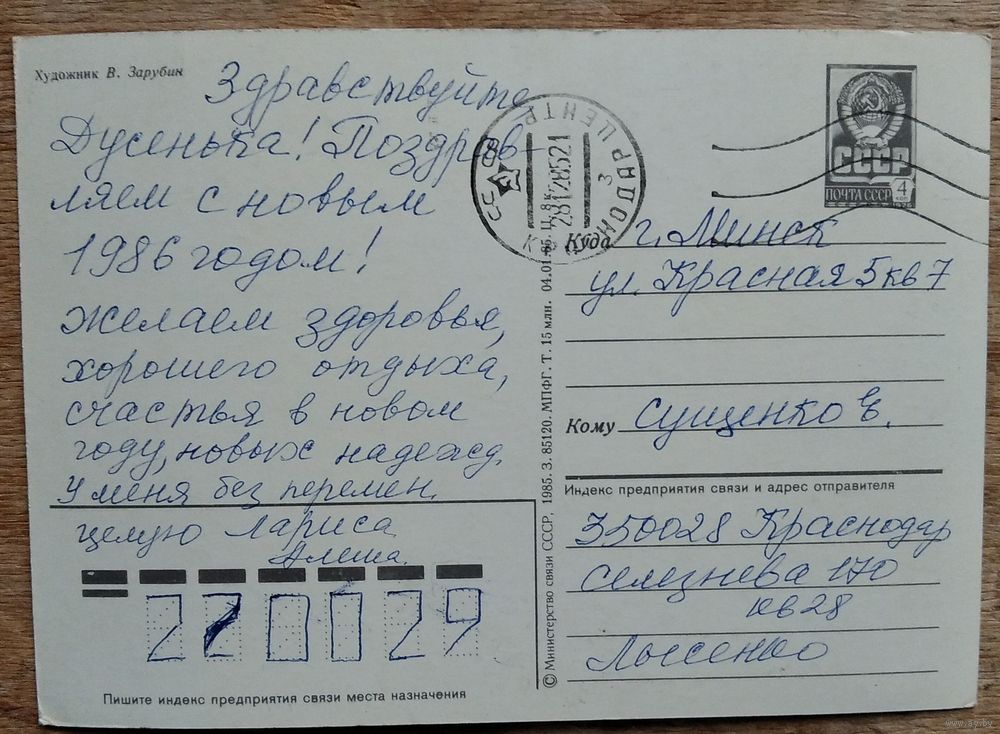 Художник В. Зарубин
Здравствуйте
Дусенька! Поздрав-
ляем с новым
1986 годом!
желаем здоровья,
хорошего отдыха,
счастья в новом
году, новых надежд.
У меня без перемен.
целую Лариса
Алеша.
220029
Пишите индекс предприятия связи места назначения
© Министерство связи СССР, 1985. З. 85120. МПФГ. Т. 15 млн. 04.01.85. Ц. 8 к.
СССР
КРАСНОДАР ЦЕНТР
281285 21
3
СССР
ПОЧТА СССР 4 коп
1976
Куда г. Минск
ул. Красная 5 кв 7
Кому Сущенко Е.
Индекс предприятия связи и адрес отправителя
350028 Краснодар
Селезнева 170
кв 28
Лысенко
www.ay.by